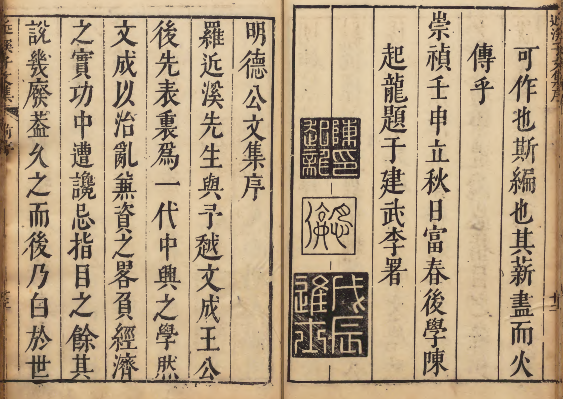 可作也斯編也其薪盡而火
傳乎
崇禎壬申立秋日富春後學陳
起龍題于建武李署
陳印
起龍
戊辰
進士
明德公文集序
羅近溪先生與予越文成王公
後先表裏爲一代中興之學然
文成以治亂兼資之畧負經濟
之實功中遭讒忌指目之餘其
說幾廢葢久之而後乃白於世